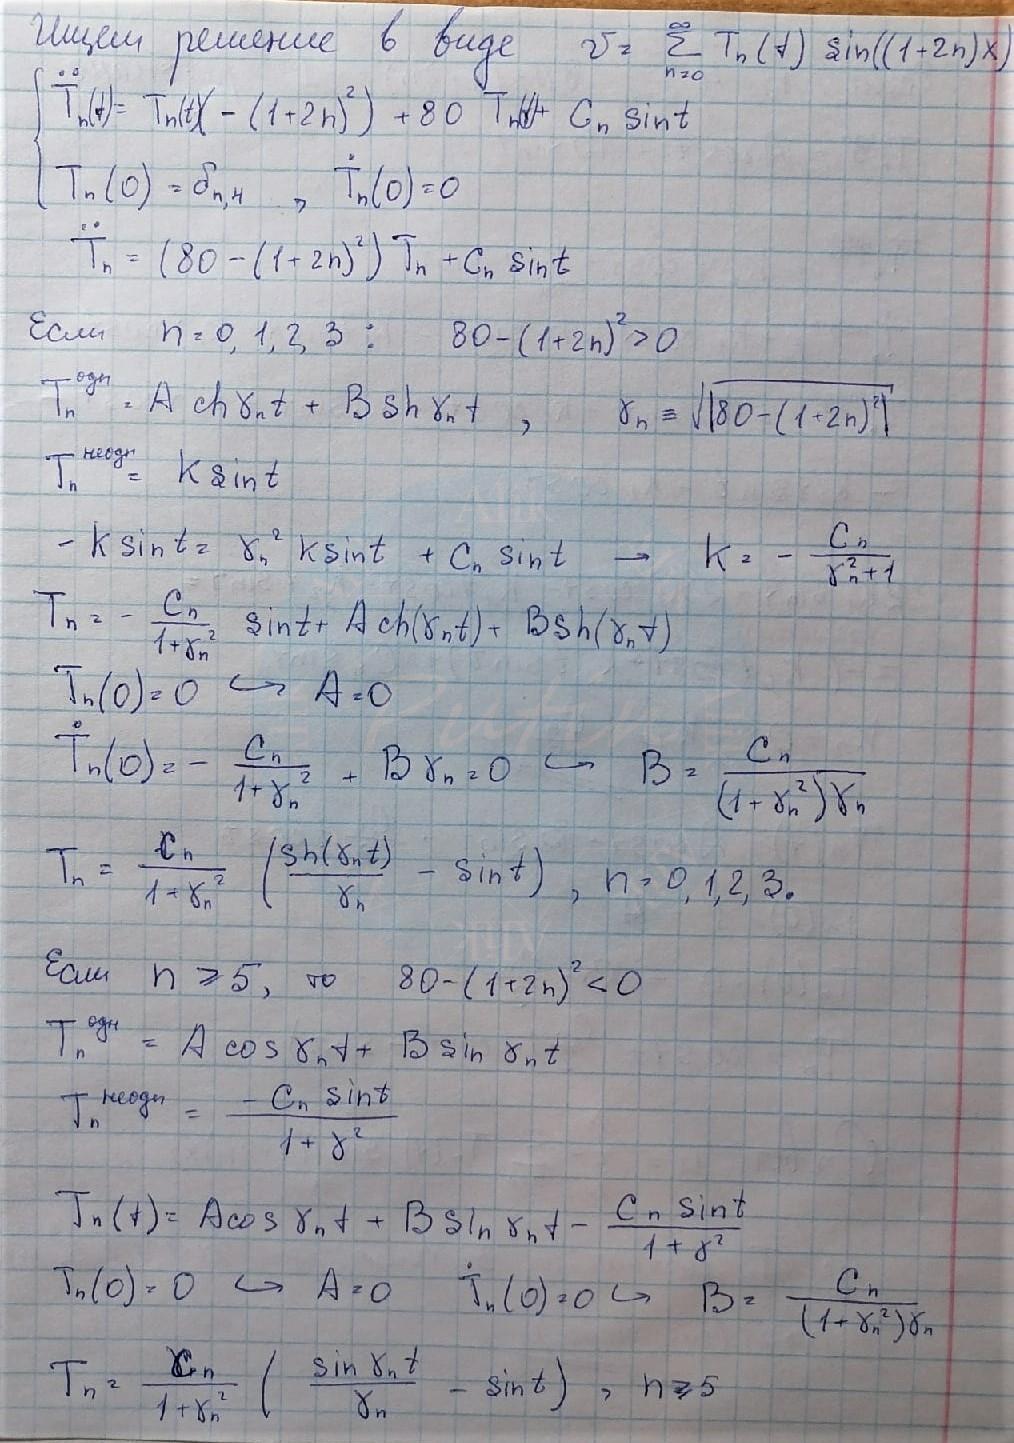 Ищем решение в виде v = ∑_{n=0}^{∞} T_n(t) sin((1+2n)x)
T̈_n(t) = T_n(t)(-(1+2n)²) + 80 T_n(t) + C_n sin t
T_n(0) = δ_{n,4} , Ṫ_n(0) = 0
T̈_n = (80-(1+2n)²) T_n + C_n sin t
Если n = 0, 1, 2, 3 : 80-(1+2n)² > 0
T_n^{одн} = A ch γ_n t + B sh γ_n t , γ_n ≡ √|80-(1+2n)²|
T_n^{неодн} = k sin t
- k sin t = γ_n² k sin t + C_n sin t → k = - C_n/(γ_n²+1)
T_n = - C_n/(1+γ_n²) sin t + A ch(γ_n t) + B sh(γ_n t)
T_n(0) = 0 ↪ A = 0
Ṫ_n(0) = - C_n/(1+γ_n²) + B γ_n = 0 ↪ B = C_n/((1+γ_n²)γ_n)
T_n = C_n/(1+γ_n²) (sh(γ_n t)/γ_n - sin t) , n = 0, 1, 2, 3.
Если n ⩾ 5, то 80-(1+2n)² < 0
T_n^{одн} = A cos γ_n t + B sin γ_n t
T_n^{неодн} = - C_n sin t/(1+γ²)
T_n(t) = A cos γ_n t + B sin γ_n t - C_n sin t/(1+γ²)
T_n(0) = 0 ↪ A = 0 Ṫ_n(0) = 0 ↪ B = C_n/((1+γ_n²)γ_n)
T_n = C_n/(1+γ_n²) (sin γ_n t/γ_n - sin t) , n ⩾ 5